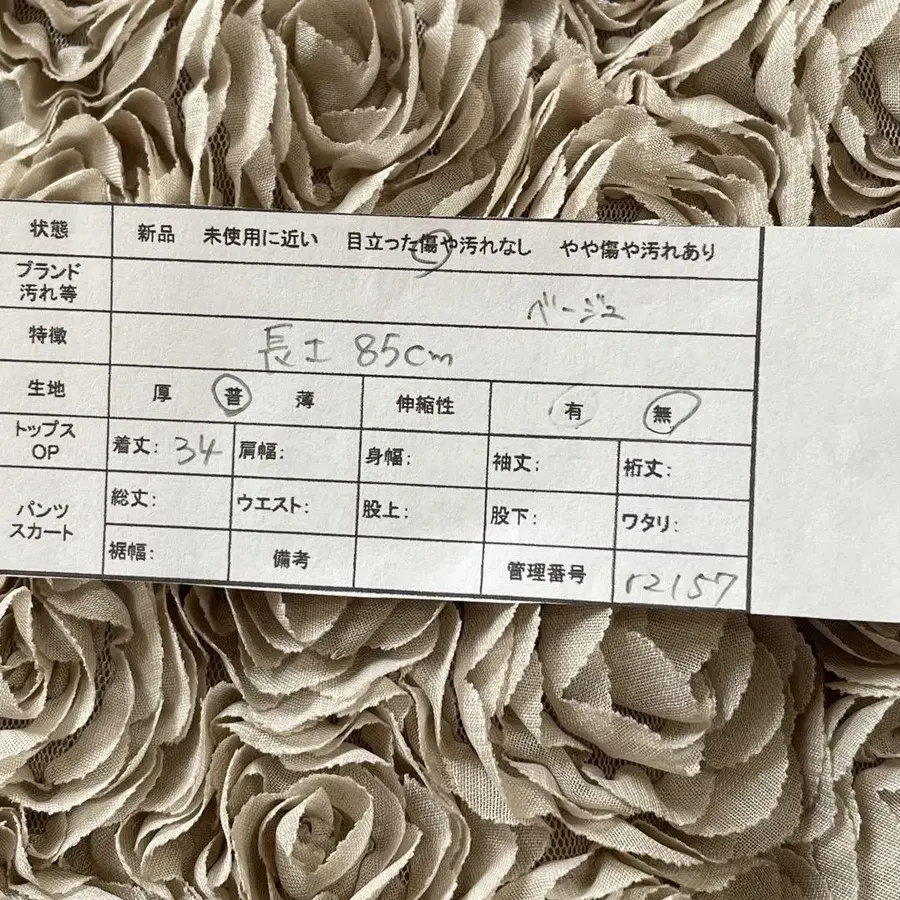 状態 新品 未使用に近い 目立った傷や汚れなし やや傷や汚れあり
ブランド
汚れ等 ベージュ
特徴 長さ 85cm
生地 厚 普 薄 伸縮性 有 無
トップス
OP 着丈: 34 肩幅: 身幅: 袖丈: 裄丈:
パンツ
スカート 総丈: ウエスト: 股上: 股下: ワタリ:
裾幅: 備考 管理番号 r2157